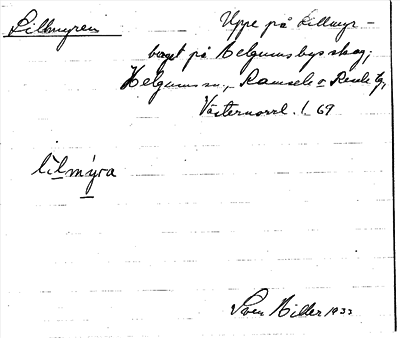 Lillmyren
Uppe på Lillmyr-
berget på Helgums bys skog;
Helgums sn., Ramsele o Resele tg,
Västernorrl. l. 69
lìlmy̆ra
Sven Hiller 1933